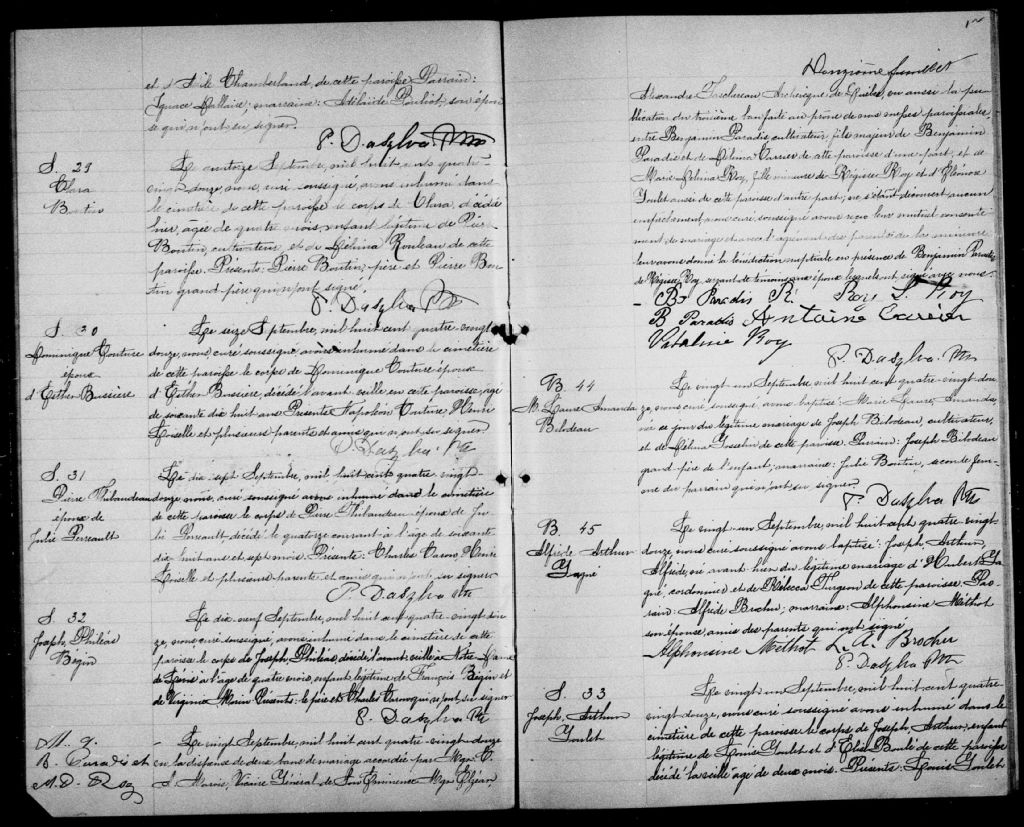 et d'Adèle Chamberland, de cette paroisse. Parrain:
Ignace Lallaire; marraine: Adélaïde Pouliot, son épou
se qui n'ont su signer.
P. Daszlva Ptre
S. 29
Clara
Boutin
Le quatorze Septembre, mil huit cents quatre-
vingt-douze, nous, curé soussigné, avons inhumé dans
le cimetière de cette paroisse le corps de Clara, décédée
hier, âgée de quatre mois, enfant légitime de Pierre
Boutin, cultivateur, et de Délina Rouleau de cette
paroisse. Présents: Pierre Boutin, père et Pierre Bou-
tin grand-père qui n'ont signé.
P. Daszlva Ptre
S. 30
Dominique Couture
époux
d'Esther Bussière
Le seize Septembre, mil huit cent quatre-vingt
douze, nous curé soussigné avons inhumé dans le cimetière
de cette paroisse le corps de Dominique Couture époux
d'Esther Bussière, décédé l'avant veille en cette paroisse, âgé
de soixante dix huit ans. Présents Napoléon Couture, Henri
Loiselle et plusieurs parents et amis qui n'ont su signer.
P. Daszlva Ptre
S. 31
Pierre Thibaudeau
époux de
Julie Perreault
Le dix sept Septembre, mil huit cent quatre vingt-
douze nous, curé soussigné avons inhumé dans le cimetière
de cette paroisse le corps de Pierre Thibaudeau époux de Ju-
lie Perreault décédé le quatorze courant à l'âge de soixante
dix huit ans et sept mois. Présents: Charles Caron, Henri
Loiselle et plusieurs parents et amis qui n'ont su signer
P. Daszlva Ptre
S. 32
Joseph, Philéas
Bégin
Le dix neuf Septembre, mil huit cent quatre-vingt dou-
ze, nous curé soussigné, avons inhumé dans le cimetière de cette
paroisse le corps de Joseph, Philéas, décédé l'avant veille à Notre-Dame
de Lévis à l'âge de quatre mois, enfant légitime de François Bégin et
de Virginie Morin. Présents: le père et Charles Caron qui n'ont su signer
P. Daszlva Ptre
M. 9.
B. Paradis et
M. D. Roy
Le vingt Septembre, mil huit cent quatre-vingt-douze
en la dispense de deux bans de mariage accordée par Mgr. C.
A. Marois, Vicaire Général de Son Eminence Mgr Elzéar,
Douzième feuillet
Alexandre Taschereau, Archevêque de Québec, vu aussi la pu-
blication du troisième ban faite au prône de nos messes paroissiales,
entre Benjamin Paradis, cultivateur, fils majeur de Benjamin
Paradis et de Délima Carrier de cette paroisse d'une part, et de
Marie Delima Roy, fille mineure de Régisse Roy et d'Eléonore
Goulet aussi de cette paroisse d'autre part; ne s'étant découvert aucun
empêchement, nous curé, soussigné avons reçu leur mutuel consente
ment de mariage et avec l'agrément des parents de la mineure
leur avons donné la bénédiction nuptiale en présence de Benjamin Paradis
de Régisse Roy servant de témoins aux époux lesquels ont signé avec nous.
B. Paradis R. Roy L. Roy
B Paradis Antoine Carrier
Vitaline Roy
P. Daszlva Ptre
B 44
M. Laure Amanda
Bilodeau
Le vingt un Septembre, mil huit cent quatre-vingt-dou
ze, nous, curé soussigné, avons baptisé: Marie, Laure, Amanda,
née ce jour du légitime mariage de Joseph Bilodeau, cultivateur,
et de Délima Gosselin de cette paroisse. Parrain: Joseph Bilodeau
grand-père de l'enfant, marraine: Julie Boutin, seconde fem-
me du parrain qui n'ont su signer
P. Daszlva Ptre
B. 45
Alfrède Arthur
Gagné
Le vingt-un Septembre, mil huit cent quatre-vingt-
douze, nous curé soussigné avons baptisé: Joseph, Arthur,
Alfrède, né avant hier du légitime mariage d'Hubert Ga-
gné, cordonnier et de Rebecca Turgeon de cette paroisse. Par-
rain: Alfrède Brochu, marraine: Alphonsine Méthot
son épouse, amis des parents qui ont signé
Alphonsine Méthot L. A. Brochu
P. Daszlva Ptre
S. 33
Joseph, Arthur
Goulet
Le vingt-un Septembre, mil huit cent quatre-
vingt-douze, nous curé soussigné avons inhumé dans le
cimetière de cette paroisse le corps de Joseph, Arthur, enfant
légitime de Louis Goulet et d'Elise Boulé de cette paroisse
décédé la veille âgé de deux mois. Présents: Louis Goulet